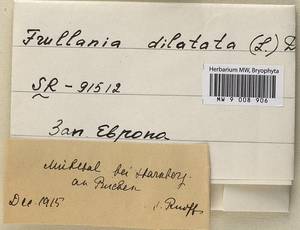 Frullania dilatata (L.) D
Herbarium MW, Bryophyta
MW 9 008 906
SR - 91512
Зап Европа
Mühltal bei Starnberg
an Buchen
Dec. 1915